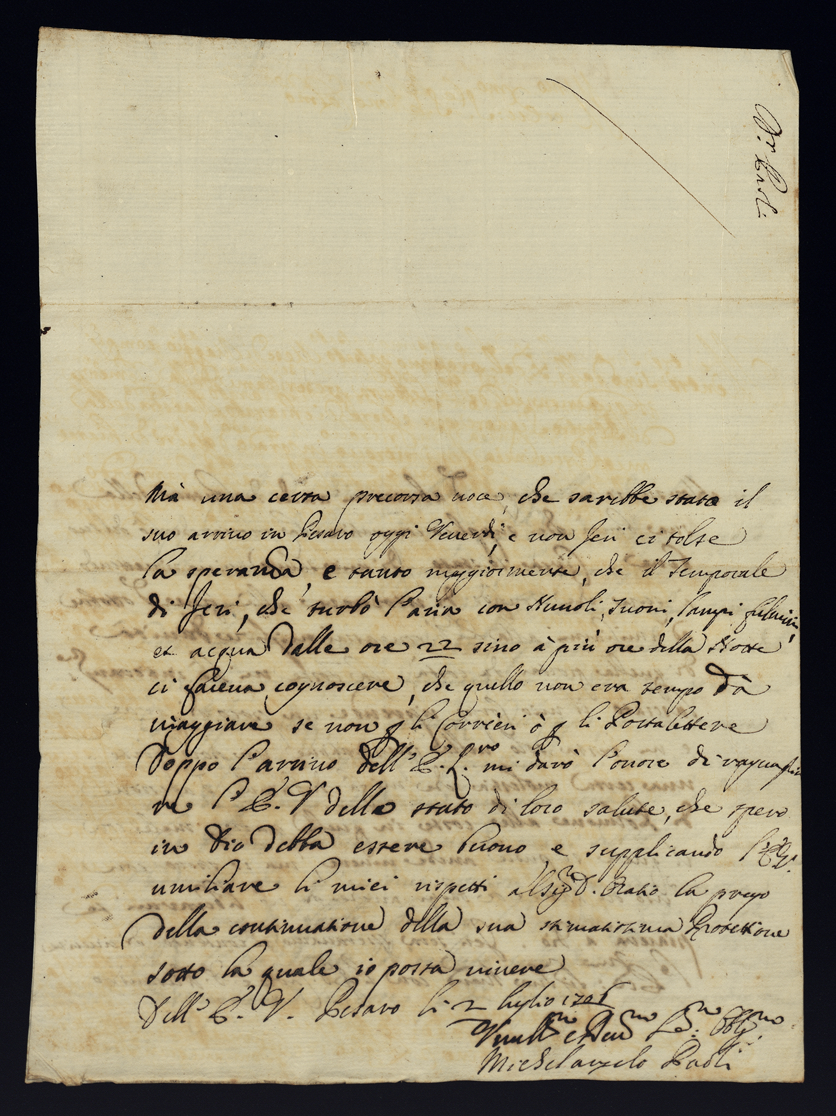 Dr: Paoli
Mà una certa precorsa voce, che sarebbe stato il
suo arrivo in Pesaro oggi Venerdì, e non Jeri ci tolse
la speranza, e tanto maggiormente, che il Temporale
di Jeri, che turbò l'aria con Nuvoli, Tuoni, Lampi fulmini,
et acqua dalle ore 22 sino à più ore della Notte
ci faceva cognoscere, che quello non era tempo dà
viaggiare se non p li Corrieri ò p li Portalettere
Doppo l'arrivo dell' E. L.ro mi darò l'onore di
re l' E. V. della stato di loro salute, che spero
in Dio debba essere buono e supplicando l'
umiliare li miei rispetti al Sig.r D. Oratio la prego
della continuatione della sua stimatissima Protettione
sotto la quale io possa vivere
Dell' E. V. Pesaro li 2 luglio
Michelangelo Paoli